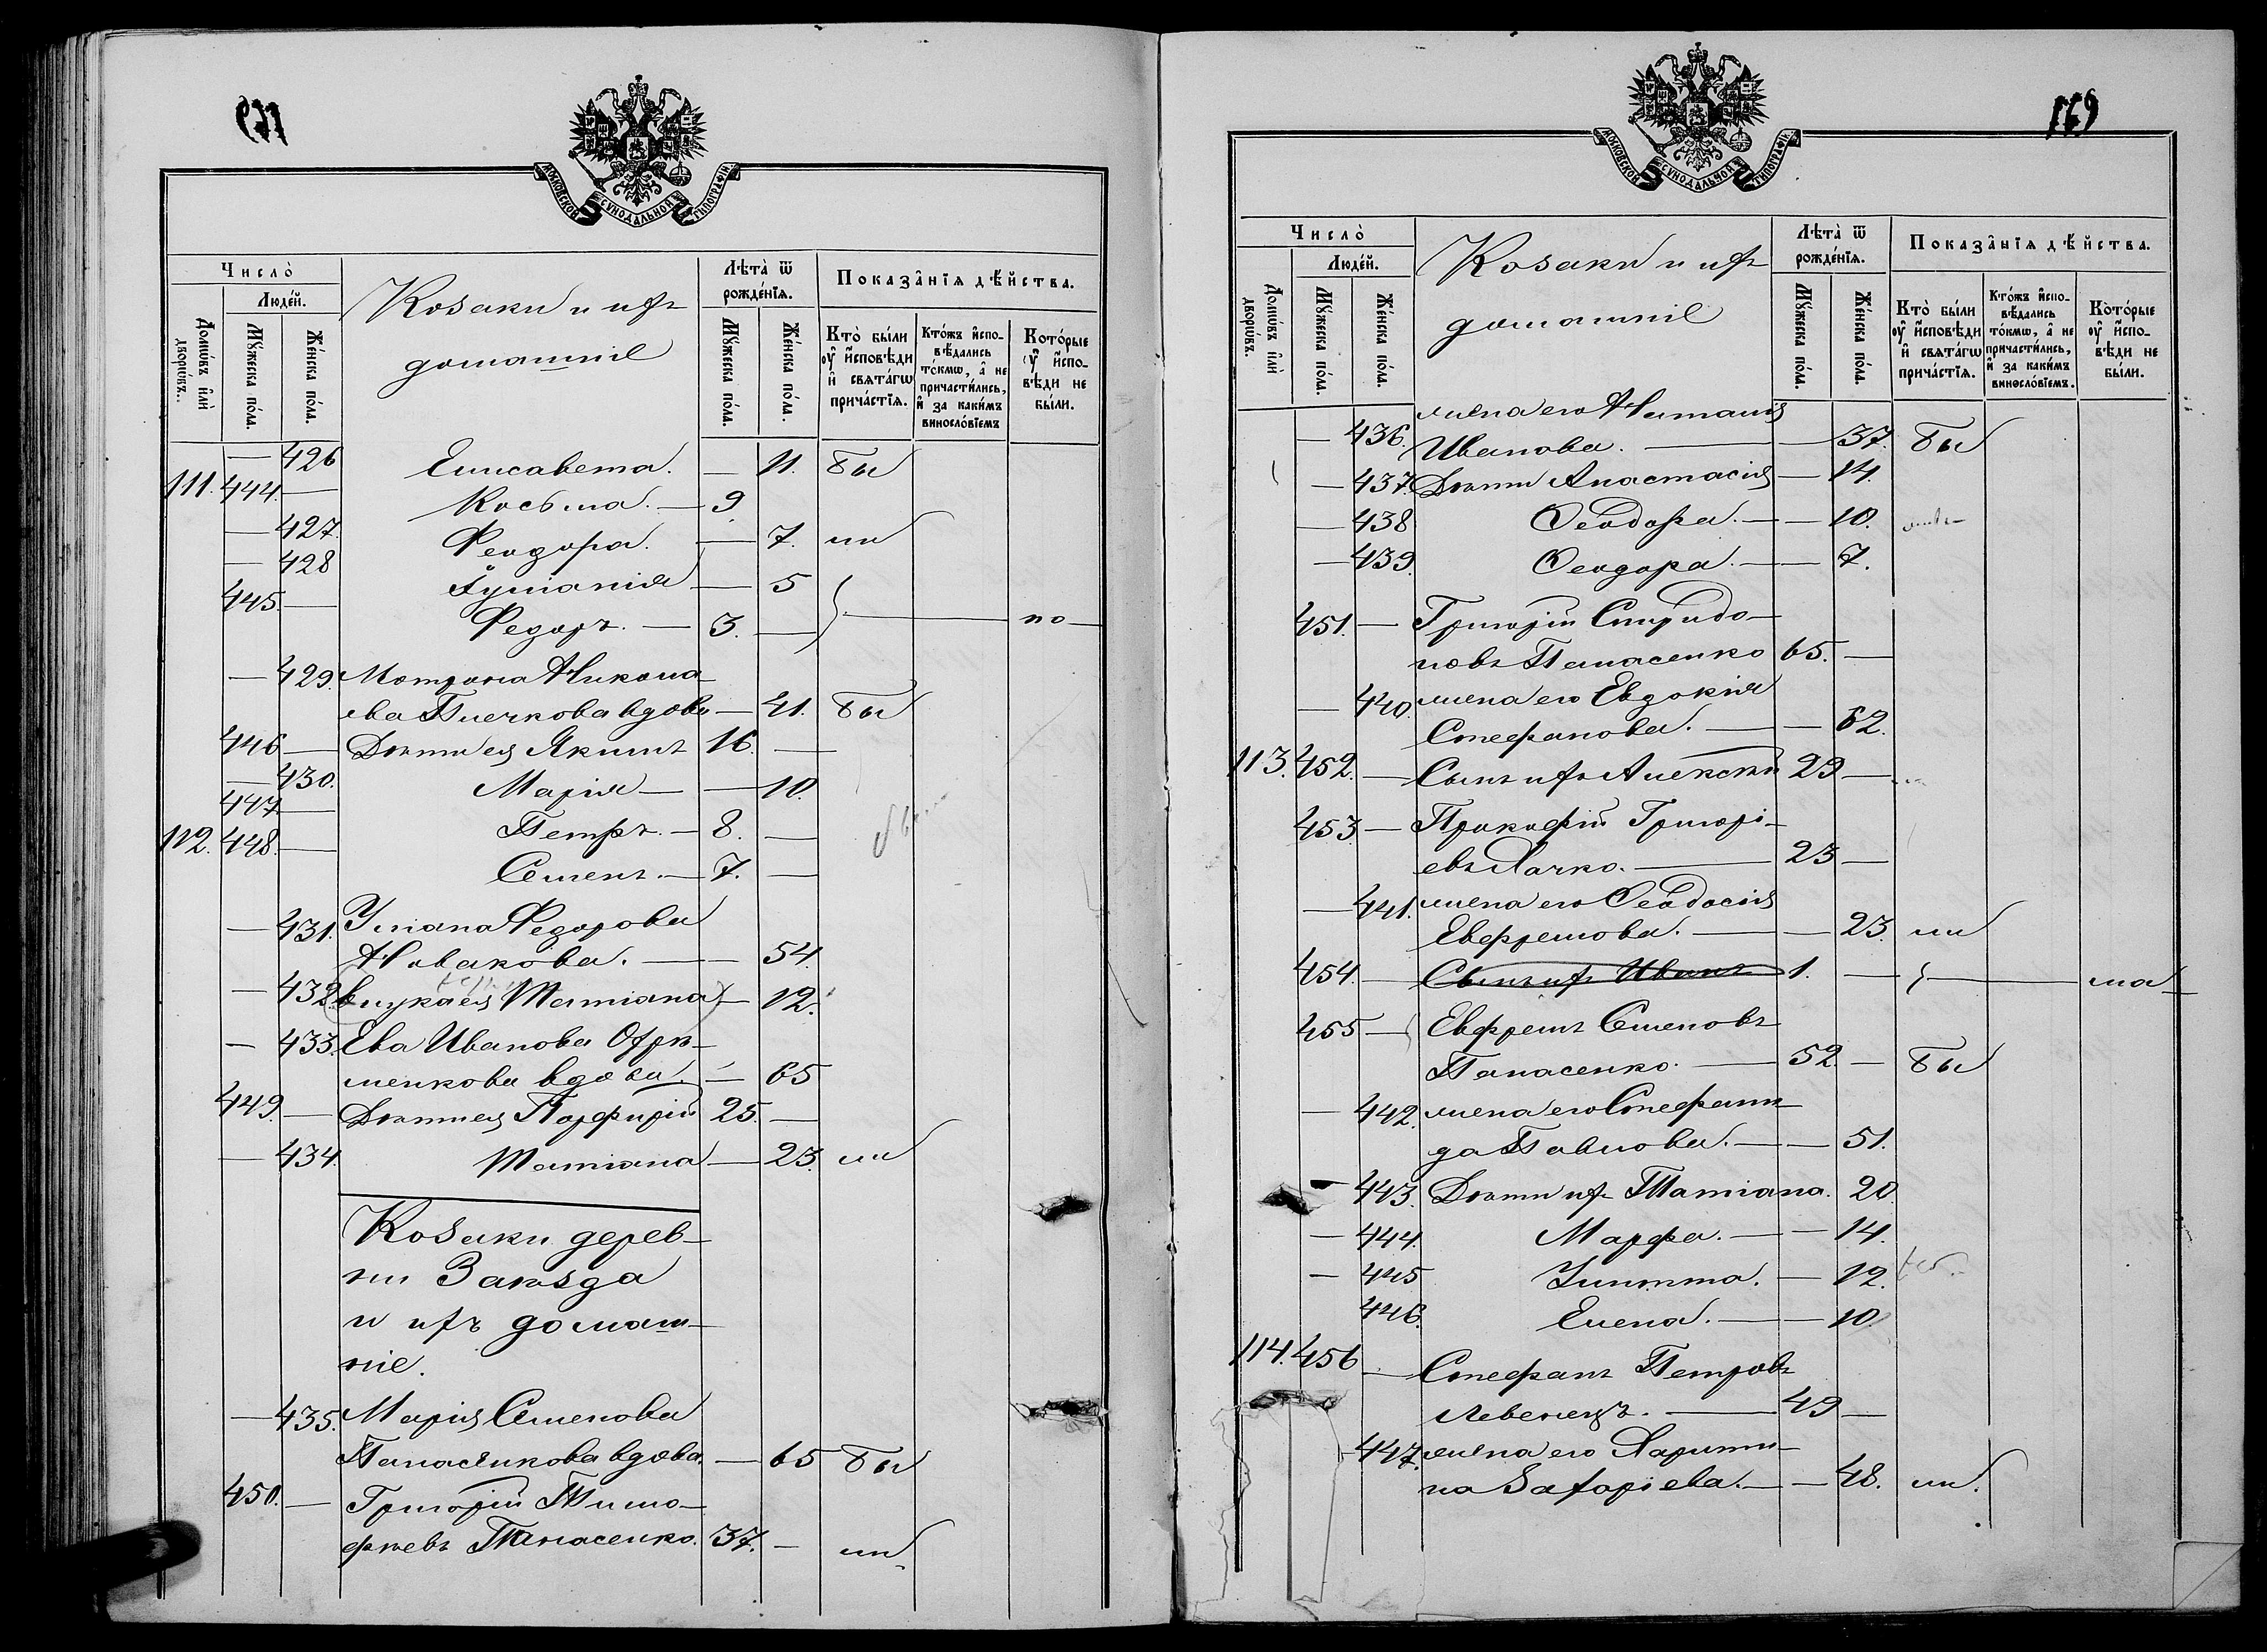 169
МОСКОВСКОЙ СѴНОДАЛЬНОЙ ТИПОГРАФІИ
Число̀
Домѡ́въ и҆лѝ дворѡ́въ.
Люде́й.
Мꙋ́жеска по́ла.
Же́нска по́ла.
Козаки и ихъ
домашніе
Лѣта̀ ѿ рожде́нїѧ.
Мꙋ́жеска по́ла.
Же́нска по́ла.
Показа̑нїѧ дѣ́йства.
Кто̀ бы́ли оу҆ и҆сповѣ́ди и҆ свѧта́гѡ прича́стїѧ.
Кто́жъ и҆спо- вѣ́дались то́кмѡ, а҆ не причасти́лись, и҆ за каки́мъ виносло́вїемъ
Кото́рые оу҆ и҆спо- вѣ́ди не бы́ли.
— 426 Елисавета. — 11. Бы
111. 444. — Косьма. — 9
— 427. Феодора. — 7. ли
— 428 Іуліанія — 5
445. — Федоръ. — 3. — по —
— 429. Мотрона Никола-
ева Плечкова вдова — 41. Бы
446 — Дѣти ея Якимъ 16. —
— 430. Марія — — 10.
447 — Петръ. — 8. —
112. 448. — Семенъ. — 7. —
— 431. Уліана Федорова
Новакова. — — 54.
— 432. внука ея Татіана — 12.
— 433. Ева Иванова Охрѣ-
менкова вдова. — 65
449. — Дѣти ея Порфирій 25. —
— 434. Татіана — 23. ли
Козаки дерев-
ни Заѣзда
и ихъ домаш-
ніе.
— 435. Марія Семенова
Панасенкова вдова. — 65 Бы
450. — Григорій Тимо-
фѣевъ Панасенко. 37. — ли
169
МОСКОВСКОЙ СѴНОДАЛЬНОЙ ТИПОГРАФІИ
Число̀
Домѡ́въ и҆лѝ дворѡ́въ.
Люде́й.
Мꙋ́жеска по́ла.
Же́нска по́ла.
Козаки и ихъ
домашніе
Лѣта̀ ѿ рожде́нїѧ.
Мꙋ́жеска по́ла.
Же́нска по́ла.
Показа̑нїѧ дѣ́йства.
Кто̀ бы́ли оу҆ и҆сповѣ́ди и҆ свѧта́гѡ прича́стїѧ.
Кто́жъ и҆спо- вѣ́дались то́кмѡ, а҆ не причасти́лись, и҆ за каки́мъ виносло́вїемъ.
Кото́рые оу҆ и҆спо- вѣ́ди не бы́ли.
жена его Наталія
— 436. Иванова. — — 37. Бы
— 437. Дѣти Анастасія — 14.
— 438 Феодора. — — 10.
— 439. Феодора. — — 7.
451. — Григорій Спиридо-
новъ Панасенко 65. —
— 440. жена его Евдокія
Стефанова. — — 62.
113. 452. — Сынъ ихъ Алексѣй 29 —
453. — Прокофій Григорі-
евъ Лачко. — 23 —
— 441. жена его Феодосія
Евфремова. — — 23. ли
454. — Сынъ ихъ Иванъ 1. — ла
455 — Евфремъ Семеновъ
Панасенко. — 52. — Бы
— 442. жена его Стефани-
да Павлова. — — 51.
— 443. Дѣти ихъ Татіана. 20.
— 444. Марфа. — — 14.
— 445 Улитта. — 12.
446. Елена. — — 10.
114. 456 — Стефанъ Петровъ
Левенецъ. — 49 —
447. жена его Харити-
на Захаріева. — — 48. ли.